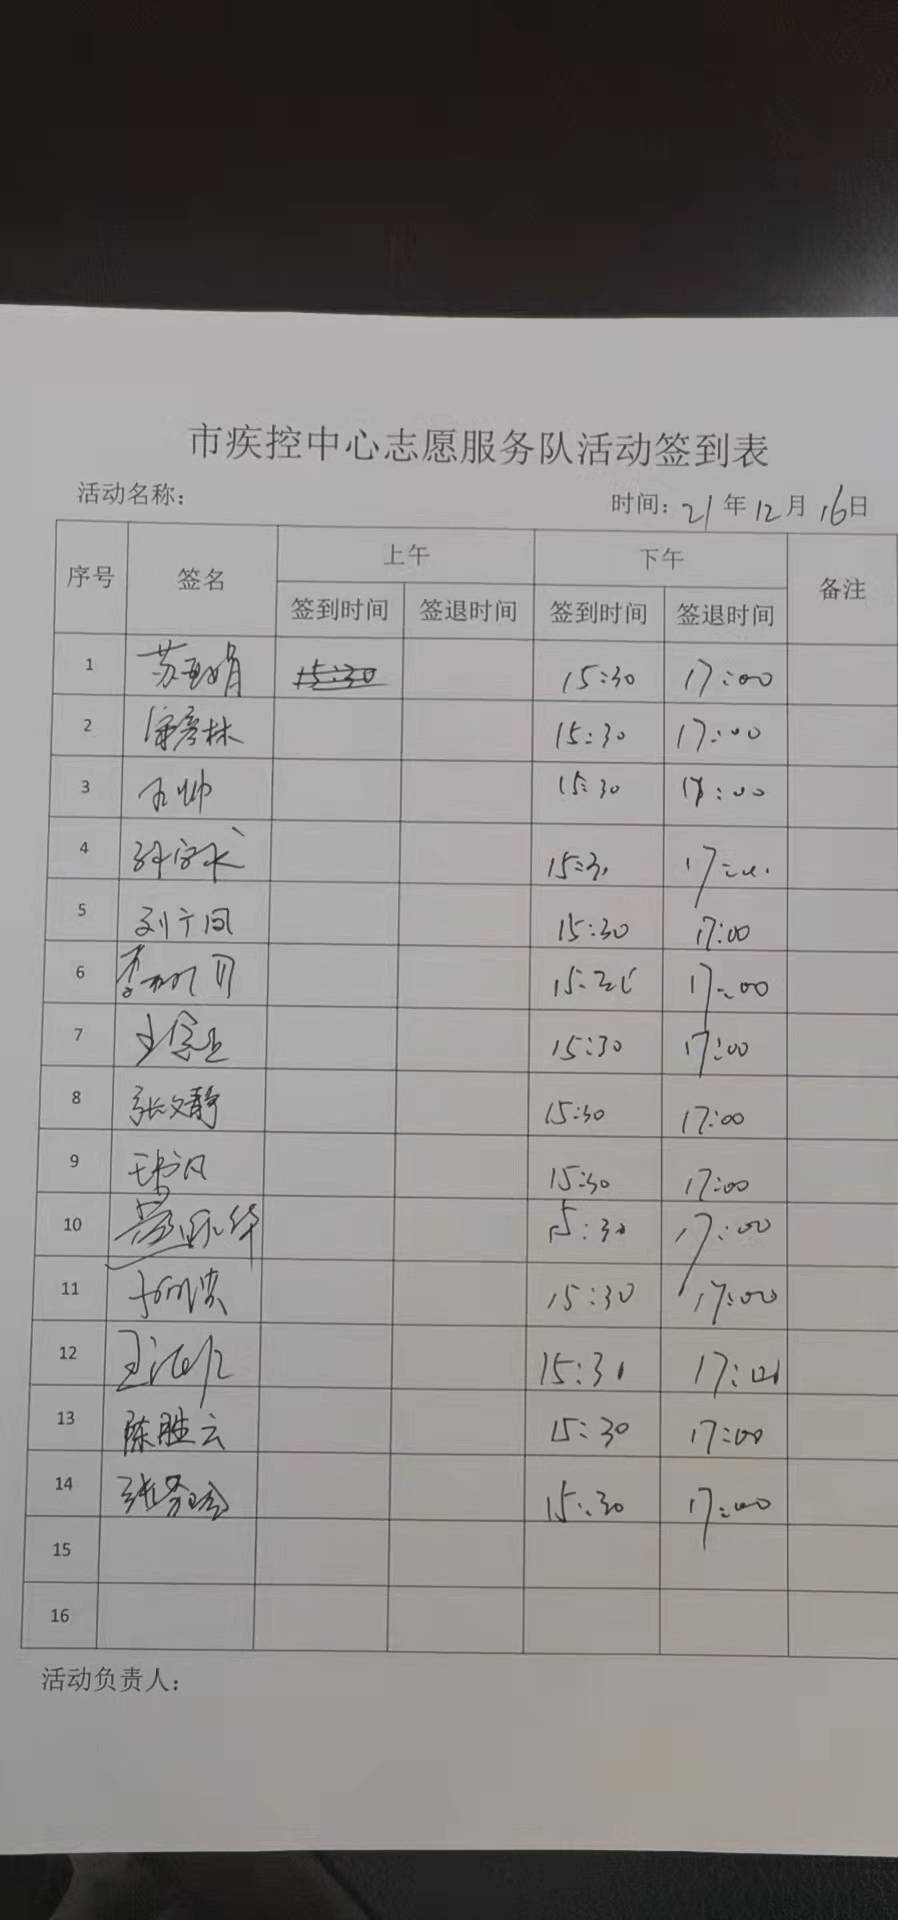 市疾控中心志愿服务队活动签到表
活动名称： 时间：21年12月16日
序号 签名 上午 下午 备注
签到时间 签退时间 签到时间 签退时间
1 苏亚娟 15:30 15:30 17:00
2 林 15:30 17:00
3 帅 15:30 17:00
4 15:30 17:00
5 刘广凤 15:30 17:00
6 李 15: 17:00
7 王 15:30 17:00
8 张文静 15:30 17:00
9 15:30 17:00
10 华 15:30 17:00
11 15:30 17:00
12 王 15:30 17:00
13 陈胜云 15:30 17:00
14 张 15:30 17:00
15
16
活动负责人：